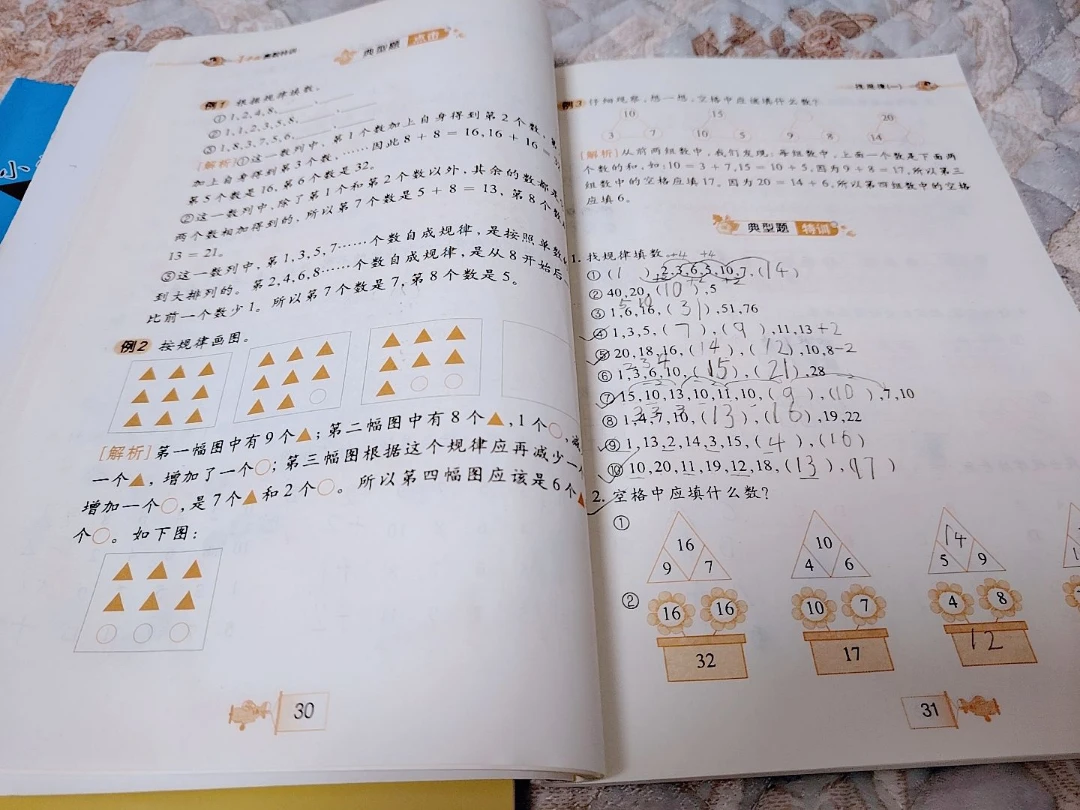 典型题 点击
例1 根据规律填数。
①1,2,4,8,
②1,1,2,3,5,8,
③1,8,3,7,5,6,
[解析]①这一数列中，第1个数加上自身得到第2个数、
加上自身得到第3个数，……因此8+8=16,16+16=
第5个数是16,第6个数是32。
②这一数列中,除了第1个和第2个数以外,其余的数都
两个数相加得到的,所以第7个数是5+8=13,第8个数
13=21。
③这一数列中,第1,3,5,7……个数自成规律,是按照单数
到大排列的。第2,4,6,8……个数自成规律,是从8开始后
比前一个数少1。所以第7个数是7,第8个数是5。
例2 按规律画图。
[解析]第一幅图中有9个▲;第二幅图中有8个▲,1个○,
一个▲,增加了一个○;第三幅图根据这个规律应再减少一
增加一个○,是7个▲和2个○。所以第四幅图应该是6个▲
个○。如下图:
30
找规律(一)
例3 仔细观察,想一想,空格中应该填什么数?
10 15 20
3 7 10 5 9 8 14
[解析]从前两组数中,我们发现,每组数中,上面一个数是下面两
个数的和,如:10=3+7,15=10+5,因为9+8=17,所以第三
组数中的空格应填17。因为20=14+6,所以第四组数中的空格
应填6。
典型题 特训
1. 找规律填数。 +4 +4
①(1),2,3,6,5,10,7,(14)
②40,20,(10),5
5 10
③1,6,16,(31),51,76
④1,3,5,(7),(9),11,13+2
⑤20,18,16,(14),(12),10,8-2
2 3 4
⑥1,3,6,10,(15),(21),28
⑦15,10,13,10,11,10,(9),(10),7,10
3 3 3
⑧1,4,7,10,(13),(16),19,22
⑨1,13,2,14,3,15,(4),(16)
⑩10,20,11,19,12,18,(13),(17)
2. 空格中应填什么数?
①
16 10 14
9 7 4 6 5 9
②
16 16 10 7 4 8
32 17 12
31